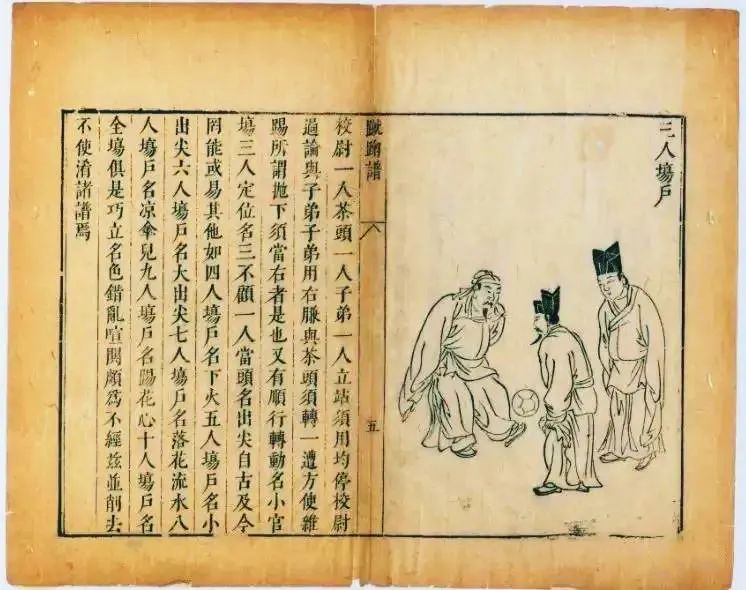 三人塲戶
蹴踘譜
五
校尉一人茶頭一人子弟一人立站須用均停校尉
過論與子弟子弟用右膁與茶頭須轉一遭方使雜
踢所謂拋下須當右者是也又有順行轉動名小官
塲三人定位名三不顧一人當頭名出尖自古及今
罔能或易其他如四人塲戶名下火五人塲戶名小
出尖六人塲戶名大出尖七人塲戶名落花流水八
人塲戶名凉傘兒九人塲戶名陽花心十人塲戶名
全塲俱是巧立名色錯亂喧鬨頗爲不經茲並削去
不使淆諸譜焉